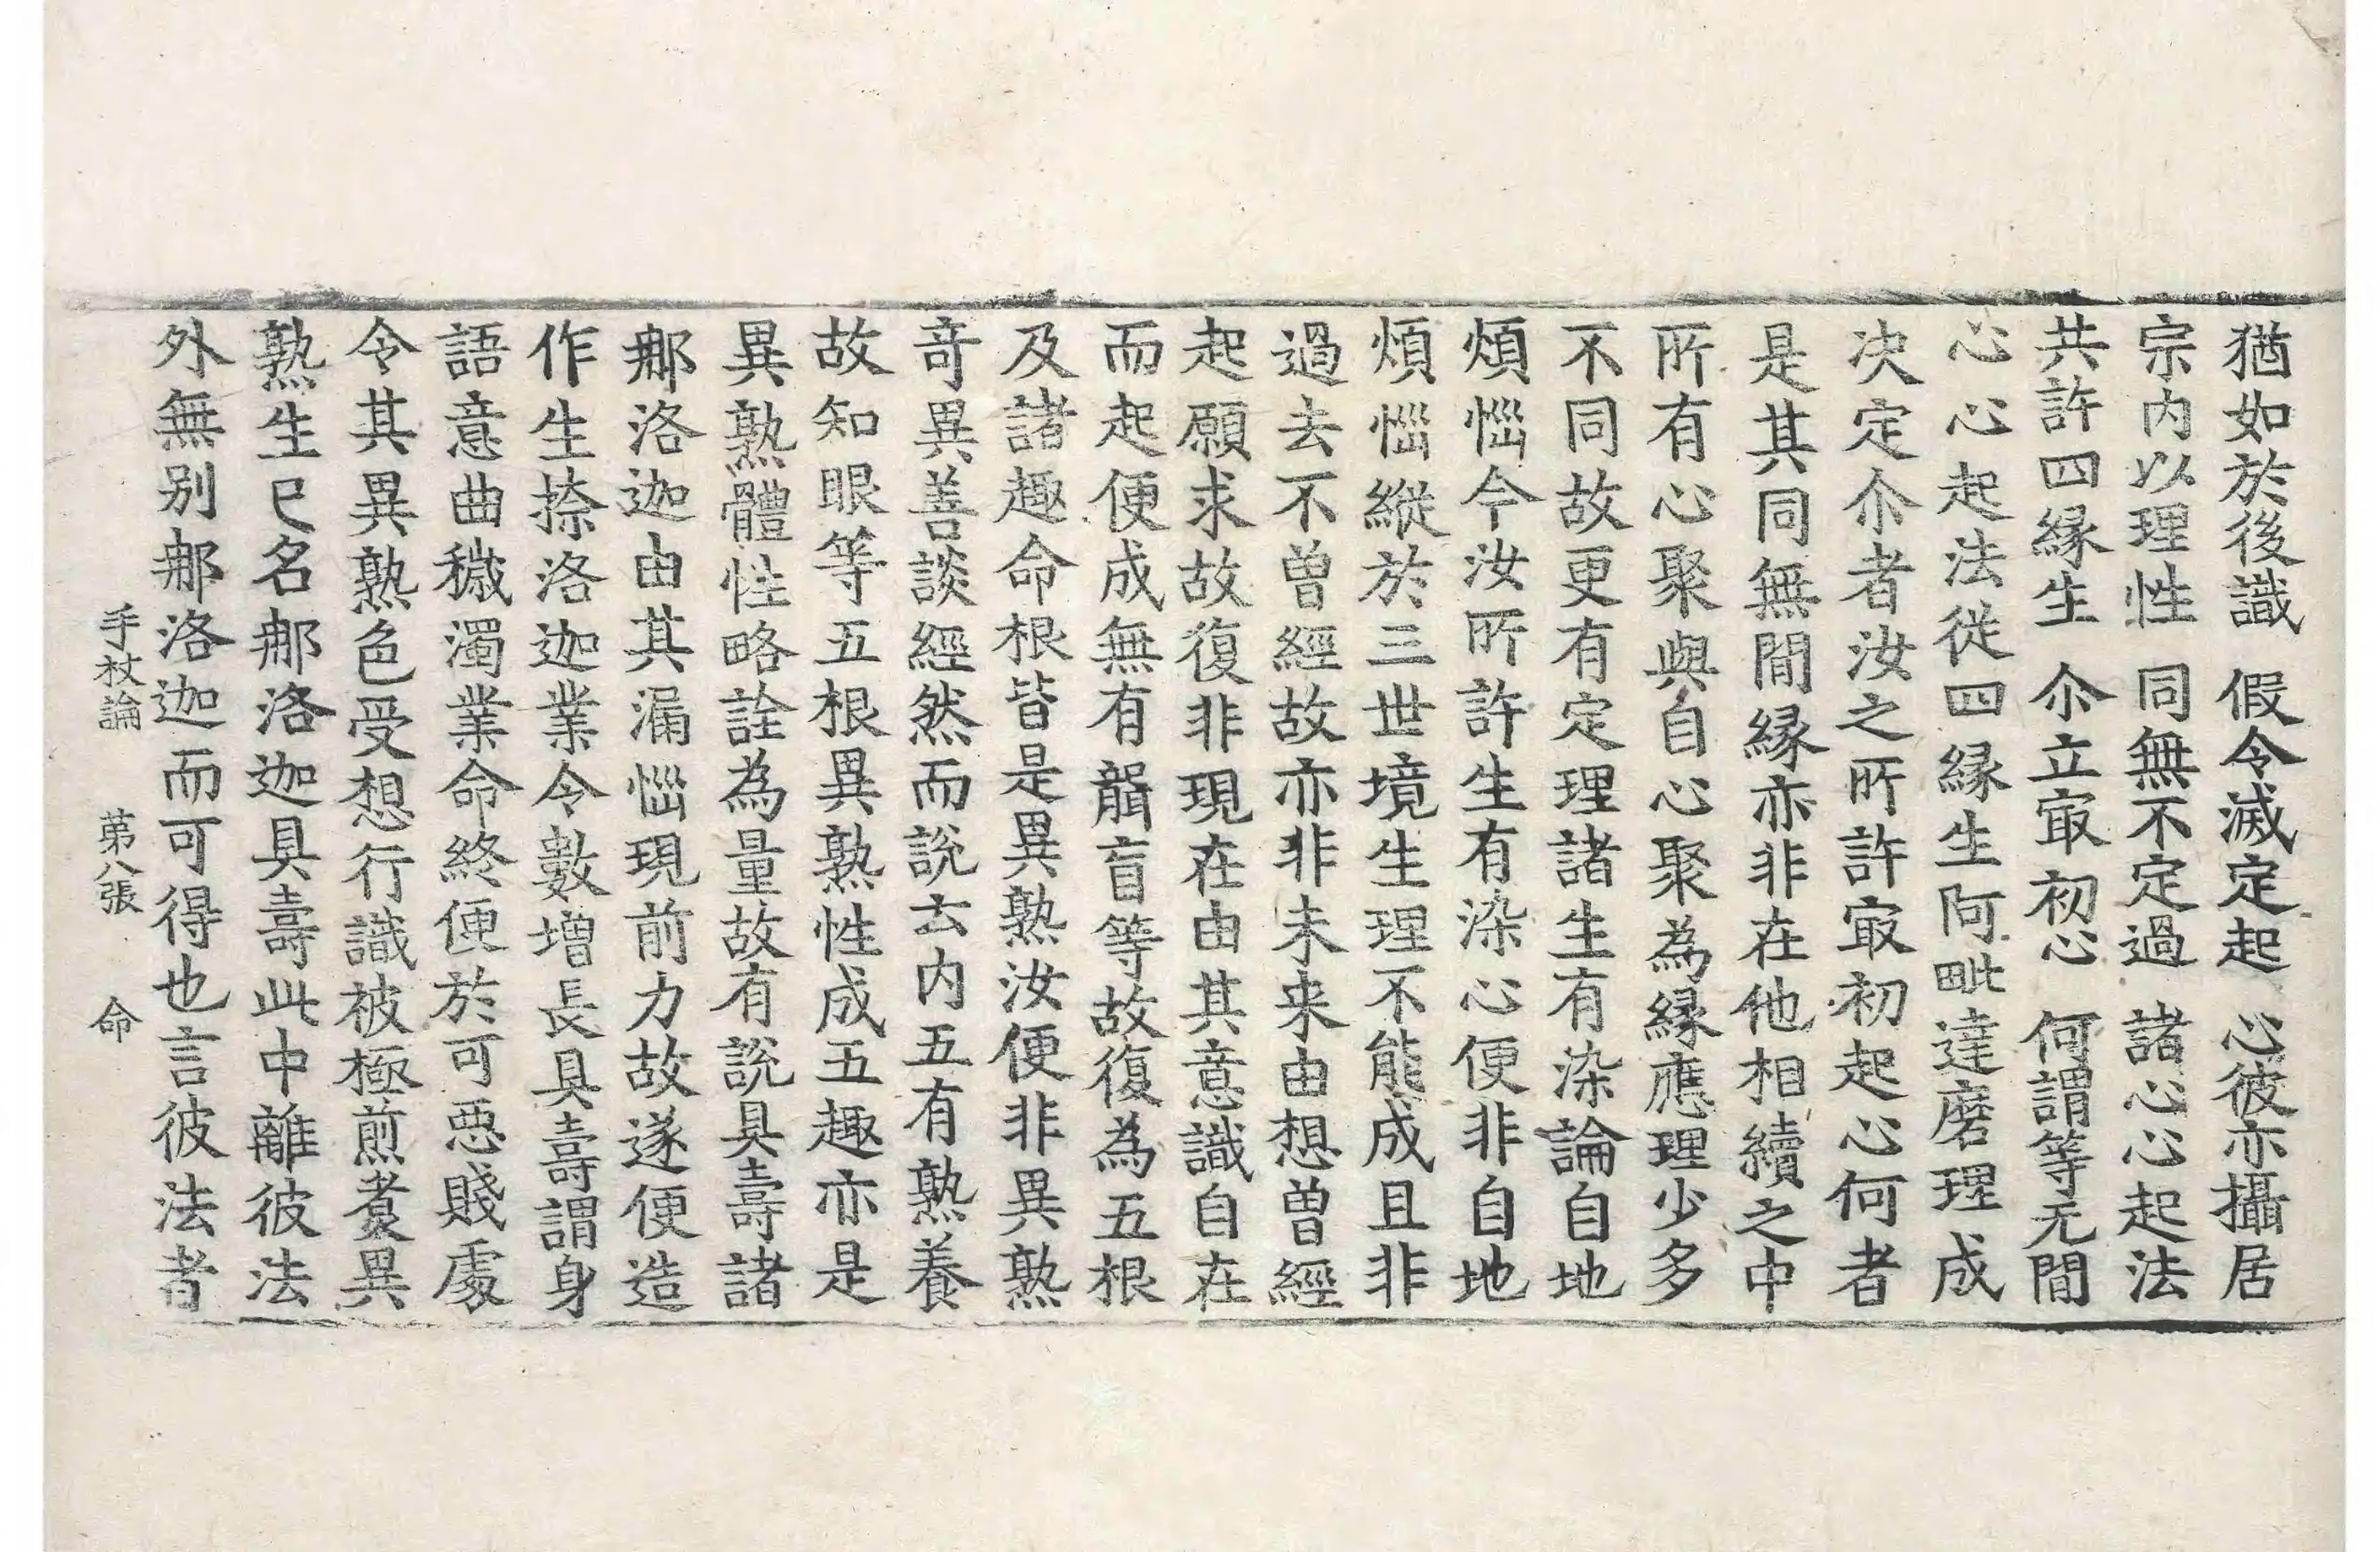 猶如於後識假令滅定起心彼亦攝居
宗內以理性同無不定過諸心心起法
共許四縁生尒立冣初心何謂等无間
心心起法從四縁生阿毗達磨理成
决定尒者汝之所許冣初起心何者
是其同無間縁亦非在他相續之中
所有心聚與自心聚為縁應理少多
不同故更有定理諸生有染論自地
煩惱今汝所許生有染心便非自地
煩惱縱於三世境生理不能成且非
過去不曾經故亦非未来由想曾經
起願求故復非現在由其意識自在
而起便成無有聾盲等故復為五根
及諸趣命根皆是異熟汝便非異熟
竒異善談經然而說云内五有熟養
故知眼等五根異熟性成五趣亦是
異熟體性略詮為量故有說具壽諸
那洛迦由其漏惱現前力故遂便造
作生捺洛迦業令數增長具壽謂身
語意曲穢濁業命終便於可惡賤處
令其異熟色受想行識被極煎煑異
熟生已名那洛迦具壽此中離彼法
外無别那洛迦而可得也言彼法者
手杖論　第八張　命